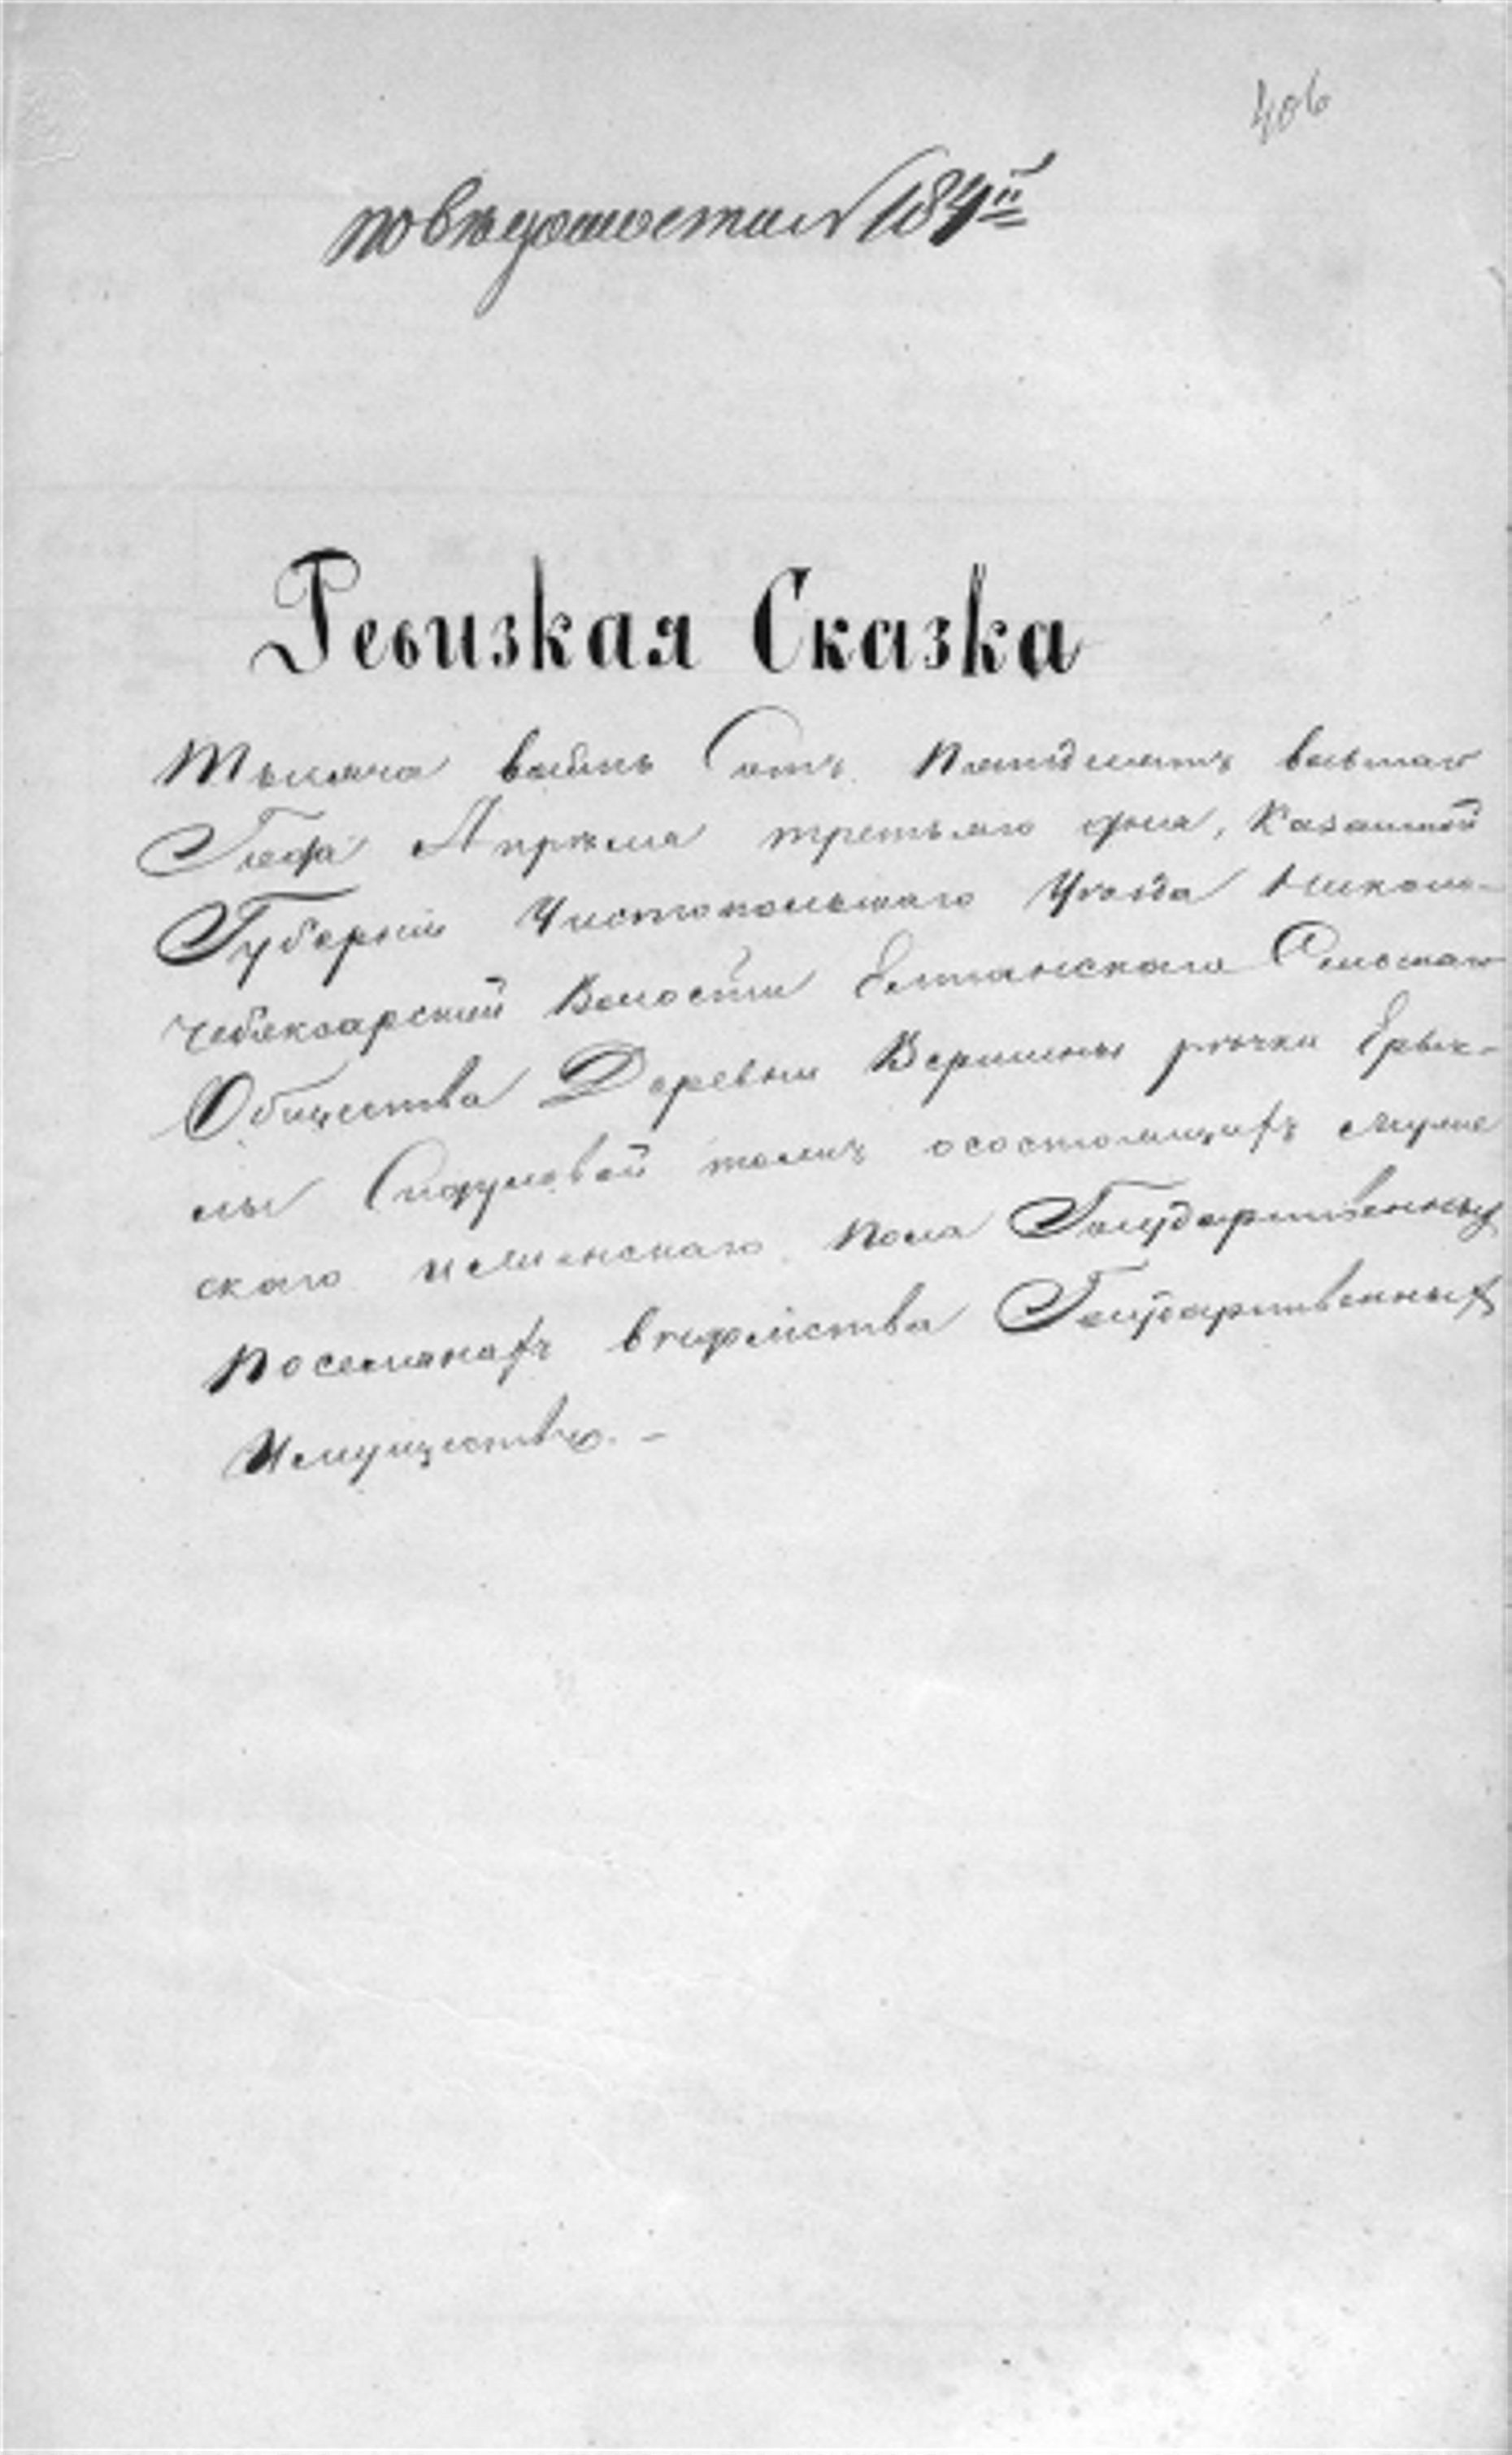 406
по вѣдомости № 184й
Ревизкая Сказка
Тысяча восемь Сотъ Пятидесятъ восьмаго
Года Апрѣля третьяго дня, Казанской
Губерніи Чистопольскаго Уѣзда Николь-
Чебоксарской Волости Елтанскаго Сельскаго
Общества Деревни Вершины рѣчки Ерык-
лы тожъ осостоящихъ мужес
скаго иженскаго пола Государственныхъ
Поселянахъ вѣдомства Государственныхъ
Имуществъ. —